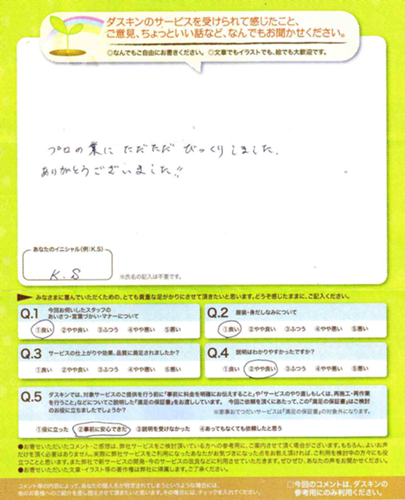 ダスキンのサービスを受けられて感じたこと、
ご意見、ちょっといい話など、なんでもお聞かせください。
○なんでもご自由にお書きください。 ○文章でもイラストでも、絵でも大歓迎です。
プロの業に ただただ びっくりしました。
ありがとうございました!!
あなたのイニシャル(例:K.S)
K.S
※氏名の記入は不要です。
みなさまに喜んでいただくための、とても貴重な足がかりにさせて頂きたいと思います。どうぞ感じたままに、ご記入ください。
Q.1 今回お伺いしたスタッフの
あいさつ・言葉づかい・マナーについて
①良い ②やや良い ③ふつう ④やや悪い ⑤悪い
Q.2 服装・身だしなみについて
①良い ②やや良い ③ふつう ④やや悪い ⑤悪い
Q.3 サービスの仕上がりや効果、品質に満足されましたか?
①良い ②やや良い ③ふつう ④やや悪い ⑤悪い
Q.4 説明はわかりやすかったですか?
①良い ②やや良い ③ふつう ④やや悪い ⑤悪い
Q.5 ダスキンでは、対象サービスのご提供を行う前に「事前に料金を明確にお伝えすること」や「サービスのやり直しもしくは、再施工・再作業
を行うこと」などについてご説明した「満足の保証書」をお渡ししています。 今回ご依頼を頂くにあたって、この「満足の保証書」はご検討
のお役に立ちましたでしょうか?
※家事おてつだいサービスは「満足の保証書」の対象外になります。
①役に立った ②事前に安心できた ③説明を受けなかった ④あってもなくても依頼したと思う
●お寄せいただいたコメント・ご感想は、弊社サービスをご検討頂いている方への参考用に、ご案内させて頂く場合がございます。もちろん、よいお声
だけを頂く必要はありません。実際に弊社サービスをご利用になったあなたがお気づきになった点をお教え頂ければ、ご利用を検討中の方々にも役
立つことと思います。また弊社で新サービスの開発・今のサービスの改良などに利用させていただきます。ぜひぜひ、あなたの声をお聞かせください。
●お寄せいただいた文章・イラスト等の著作権は弊社に帰属します。ご了承ください。
□今回のコメントは、ダスキンの
参考用にのみ利用ください。